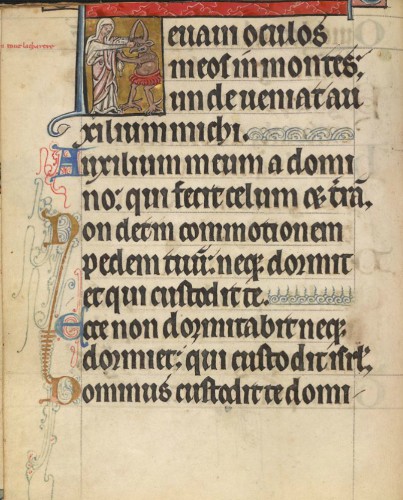 Levavi oculos
meos in montes;
unde veniat au
xilium michi.
Auxilium meum a domi
no: qui fecit celum et t̃rã.
Non det in commotionem
pedem tuũ: neq; dormit
et qui custodit te.
Ecce non dormitabit neq;
dormiet: qui custodit isr̃l.
Dominus custodit te domi